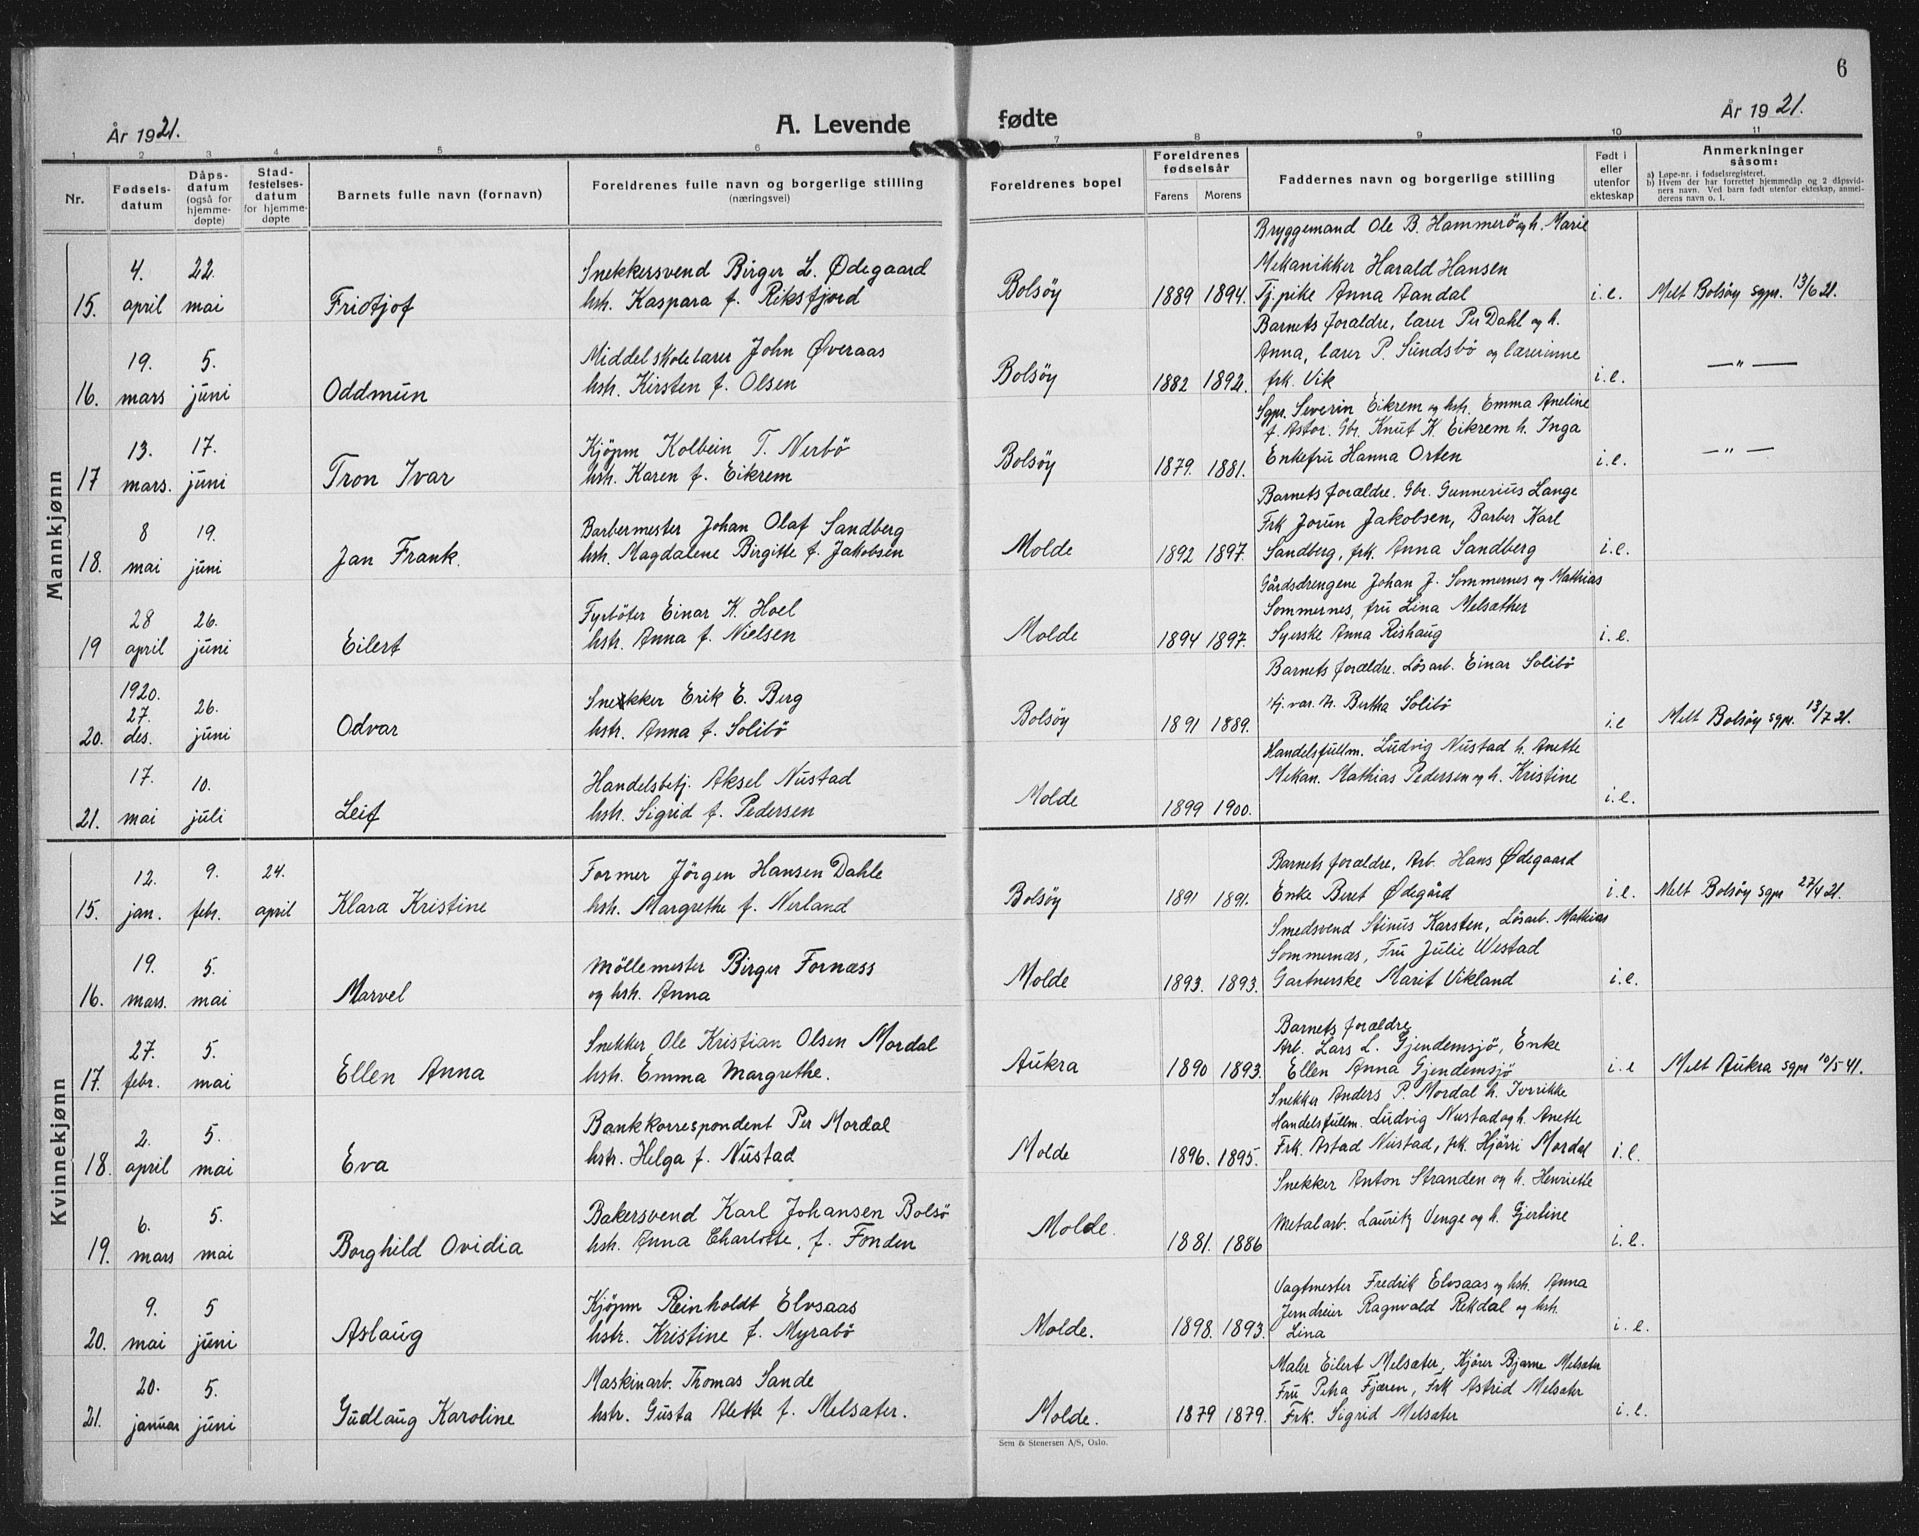 6
År 1921.
A. Levende
fødte
År 1921.
1 2 3 4 5 6 7 8 9 10 11
Nr.
Fødsels-
datum
Dåps-
datum
(også for
hjemme-
døpte)
Stad-
festelses-
datum
for hjemme-
døpte
Barnets fulle navn (fornavn)
Foreldrenes fulle navn og borgerlige stilling
(næringsvei)
Foreldrenes bopel
Foreldrenes
fødselsår
Farens Morens
Faddernes navn og borgerlige stilling
Født i
eller
utenfor
ekteskap
Anmerkninger
såsom:
a) Løpe-nr. i fødselsregisteret.
b) Hvem der har forrettet hjemmedåp og 2 dåpsvid-
ners navn. Ved barn født utenfor ekteskap, anmel-
derens navn o. l.
Mannkjønn
15. 4. april 22. mai Fridtjof
Snekkersvend Birger L. Ødegaard
hstr. Kaspara f. Riksfjord
Bolsöy 1889 1894.
Bryggemand Ole B. Hammerö og h. Marie
Mekanikker Harald Hansen
Tj.pike Anna Aandal
i.e. Melt Bolsöy sgpr. 13/6 21.
16. 19. mars 5. juni Oddmun
Middelskolelærer John Øveraas
hstr. Kirsten f. Olsen
Bolsöy 1882 1892.
Barnets foraldre, lærer Per Dahl og h.
Anna, lærer P. Sundsbö og lærerinne
frk. Vik
i.e. — " —
17 13. mars. 17. juni Tron Ivar
Kjöpm Kolbein T. Nerbö
hstr. Karen f. Eikrem
Bolsöy 1879. 1881.
Sgpr. Severin Eikrem og hstr. Emma Aneline
f. Astor. Gbr. Knut K. Eikrem h. Inga
Enkefru Hanna Orten
i.e. — " —
18. 8 mai 19. juni Jan Frank.
Barbermester Johan Olaf Sandberg
hstr. Magdalene Birgitte f. Jakobsen
Molde 1892 1897.
Barnets foraldre. Gbr. Gunnerius Lange
Frk Jorun Jakobsen, Barber Karl
Sandberg, frk. Anna Sandberg
i.e.
19 28 april 26. juni Eilert
Fyrböter Einar K. Hoel
hstr. Anna f. Nielsen
Molde 1894 1897.
Gårdsdrengene Johan J. Sommernes og Mathias
Sommernes, fru Lina Melsæther
Syerske Anna Rishaug
i.e.
20. 1920. 27. des. 26. juni Odvar
Snekker Erik E. Berg
hstr. Anna f. Solibö
Bolsöy 1891 1889.
Barnets foraldre. Lösarb. Einar Solibö
Bertha Solibö
i.e Melt Bolsöy sgpr. 13/7 21.
21. 17. mai 10. juli Leif
Handelsbetj. Aksel Nustad
hstr. Sigrid f. Pedersen
Molde 1899 1900.
Handelsfullm. Ludvig Nustad h. Anette
Mekan. Mathias Pedersen og h. Kristine
i.e.
Kvinnekjønn
15. 12. jan. 9. febr. 24. april Klara Kristine
Former Jörgen Hansen Dahle
hstr. Margrethe f. Nerland
Bolsöy 1891 1891.
Barnets foraldre, Arb. Hans Ødegaard
Enke Beret Ødegård
i.e. Melt Bolsöy sgpr 27/4 21.
16. 19. mars. 5. mai Marvel
Möllemester Birger Fornæss
og hstr. Anna
Molde 1893. 1893.
Smedsvend Stinus Karsten, Lösarb. Mathias
Sommernæs, Fru Julie Westad
Gartnerske Marit Vikland
i.e.
17. 27. febr. 5. mai Ellen Anna
Snekker Ole Kristian Olsen Mordal
hstr. Emma Margrethe.
Aukra 1890 1893.
Barnets foraldre
Arb. Lars L. Gjendemsjö, Enke
Ellen Anna Gjendemsjö
i.e Melt Aukra sgpr 10/5 41.
18. 2. april 5. mai Eva
Bankkorrespondent Per Mordal
hstr. Helga f. Nustad
Molde 1896. 1895.
Snekker Anders P. Mordal h.
Handelsfullm. Ludvig Nustad og h. Anette
Frk. Astad Nustad, frk. Hjörri Mordal
i.e.
19. 6. mars 5. mai Borghild Ovidia
Bakersvend Karl Johansen Bolsö
hstr. Anna Charlotte, f. Fonden
Molde. 1881. 1886
Snekker Anton Stranden og h. Henriette
Metalarb. Lauritz Venge og h. Gjertine
i.e.
20. 9. mai 5 juni Aslaug
Kjöpm Reinholdt Elvsaas
hstr. Kristine f. Myrabö
Molde. 1898. 1893.
Vagtmester Fredrik Elvsaas og hstr. Anna
Jerndreier Ragnvald Rekdal og hstr.
Lina
i.e.
21. 20. januar 5. juni Gudlaug Karoline
Maskinarb. Thomas Sande
hstr. Gusta Alette f. Melsæter.
Molde. 1879 1879.
Maler Eilert Melsæter, Kjörer Bjarne Melsæter
Fru Petra Fjæren, Frk Astrid Melsæter
Frk. Sigrid Melsæter
i.e.
Sem & Stenersen A/S, Oslo.